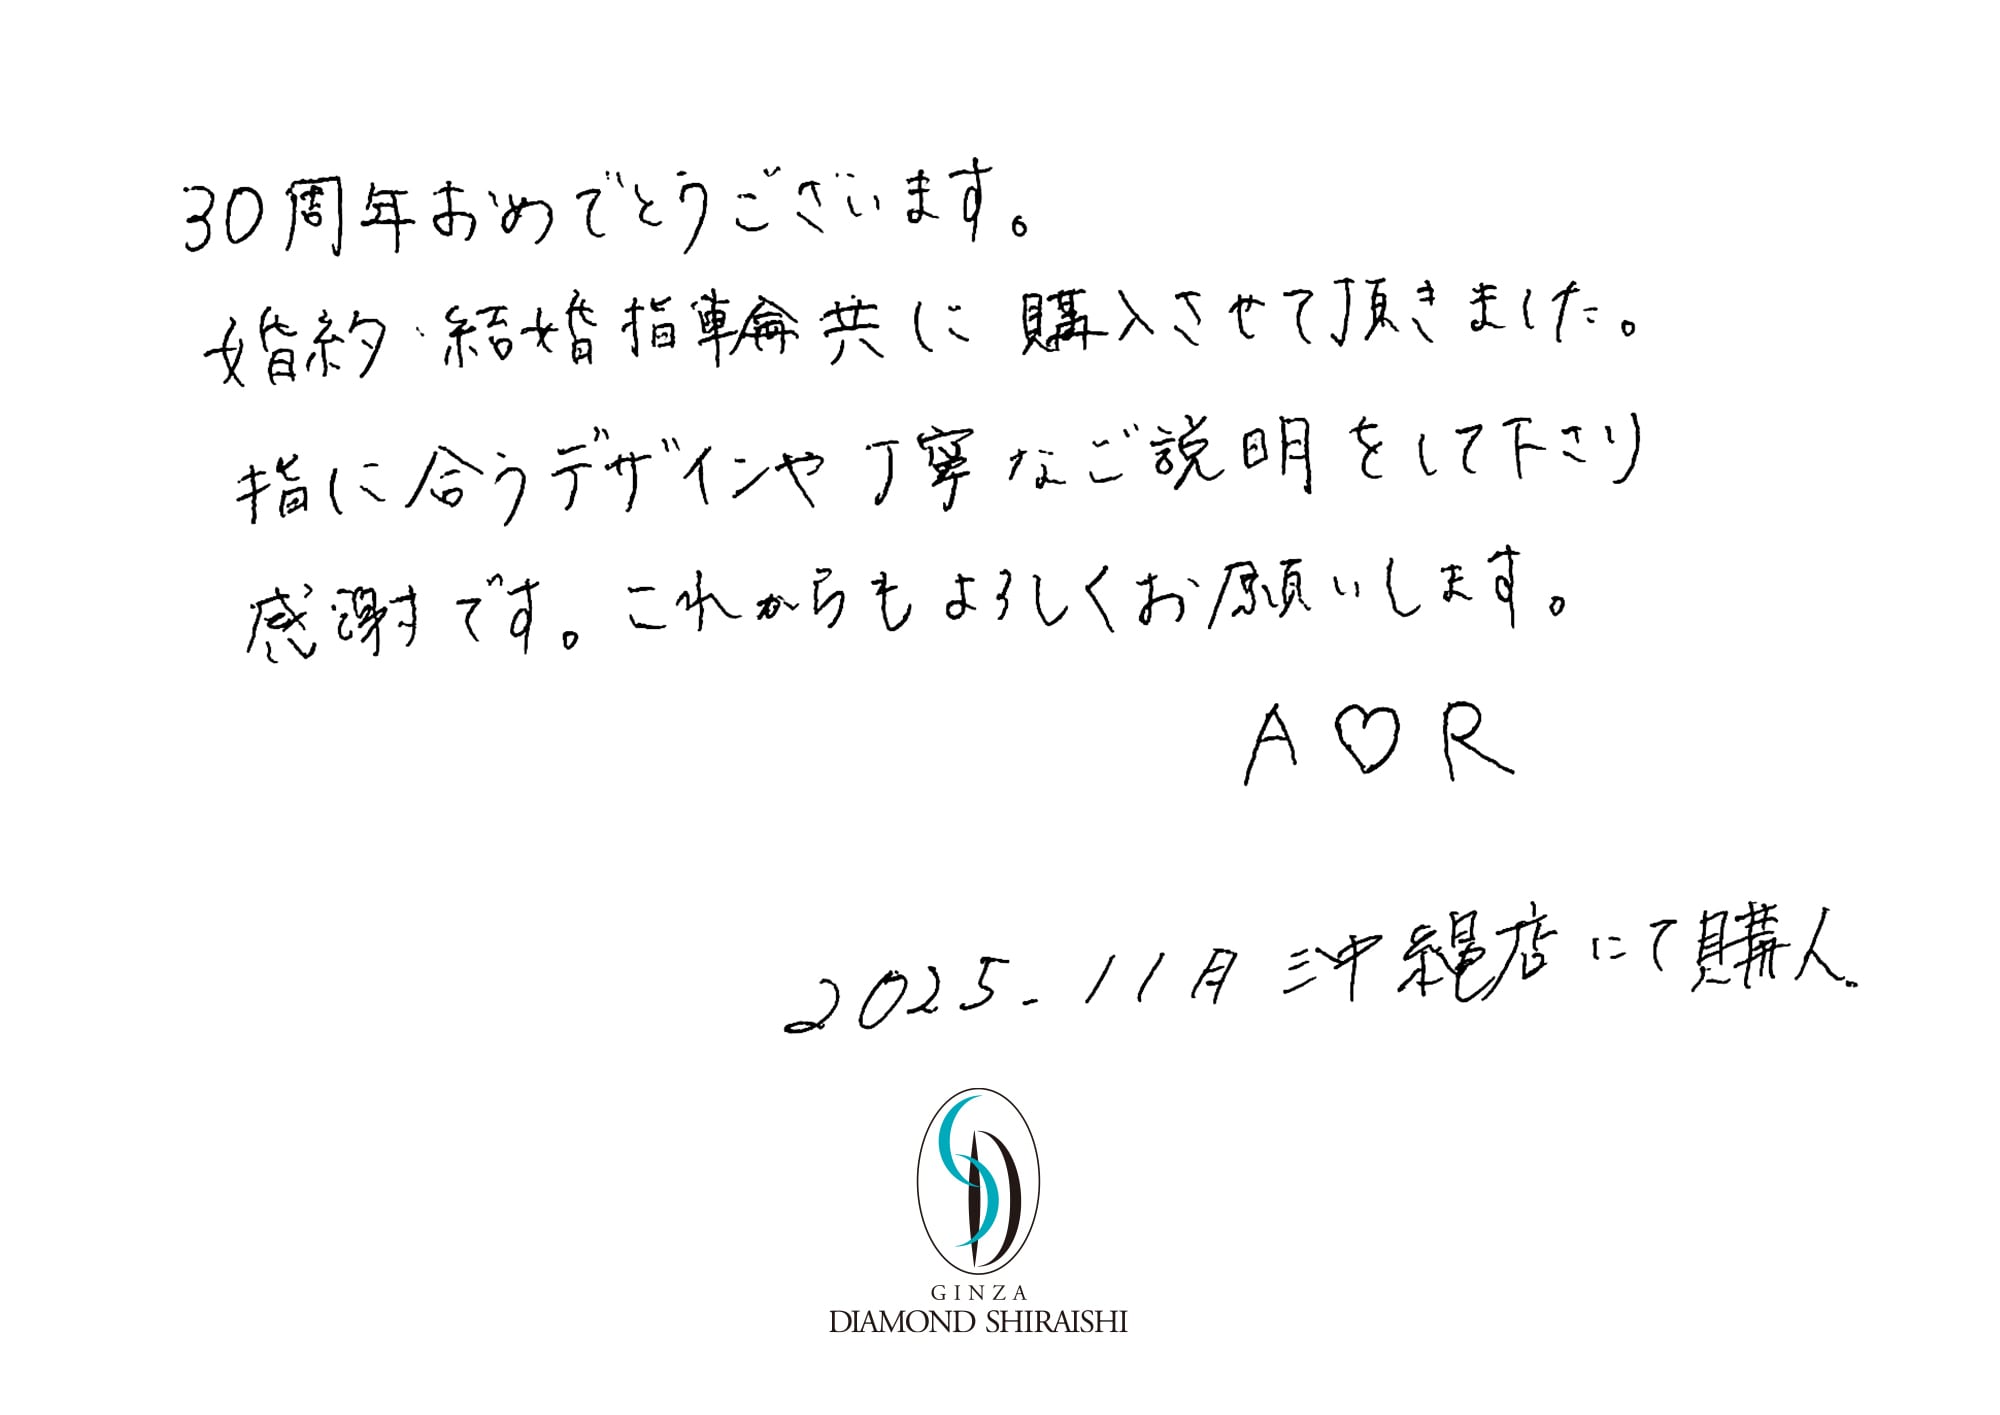 30周年おめでとうございます。
婚約・結婚指輪共に購入させて頂きました。
指に合うデザインや丁寧なご説明をして下さり
感謝です。これからもよろしくお願いします。
A♡R
2025.11月 沖縄店にて購入.
GINZA
DIAMOND SHIRAISHI